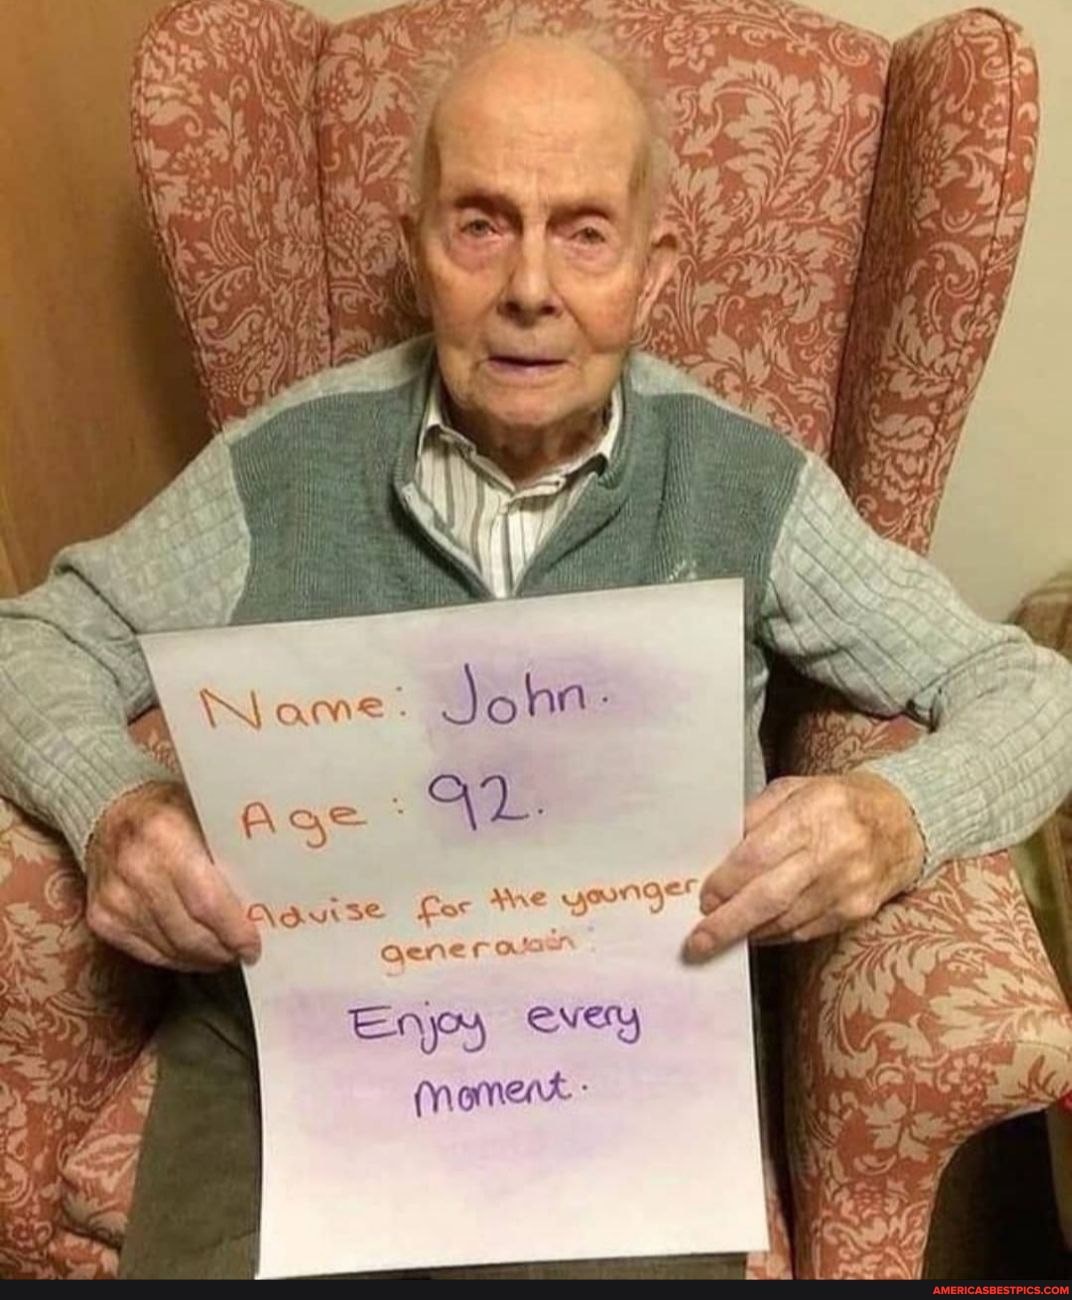 Name: John.
Age: 92.
Advise for the younger
generation:
Enjoy every
moment.
AMERICASBESTPICS.COM